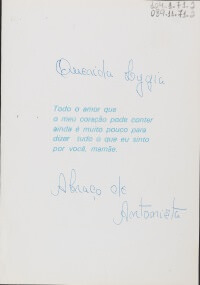 104.1.71.2
034.11.71.2
Querida Lygia
Todo o amor que
o meu coração pode conter
ainda é muito pouco para
dizer tudo o que eu sinto
por você, mamãe.
Abraço de
Antonieta